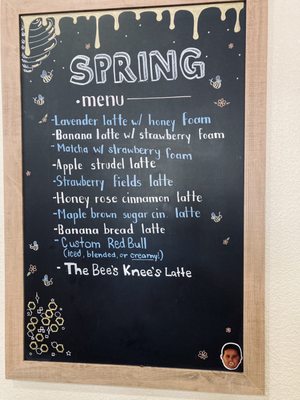 SPRING
• menu
- Lavender latte w/ honey foam
- Banana latte w/ strawberry foam
- Matcha w/ strawberry foam
- Apple strudel latte
- Strawberry fields latte
- Honey rose cinnamon latte
- Maple brown sugar cin latte
- Banana bread latte
- Custom Red Bull
(iced, blended, or creamy!)
- The Bee's Knee's Latte